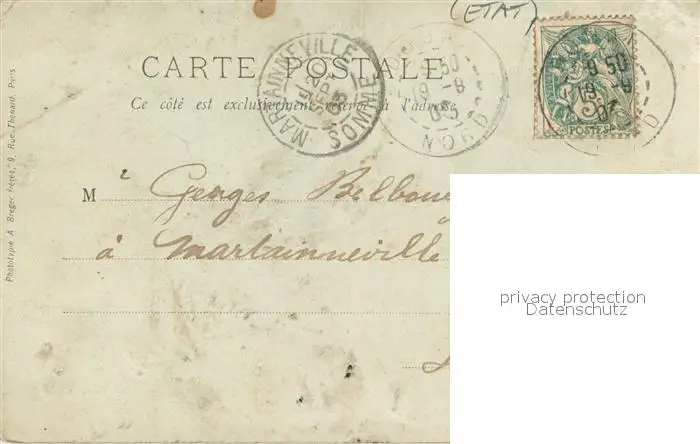 (ETAT)
CARTE POSTALE
Ce côté est exclusivement réservé à l'adresse
MARTAINNEVILLE
SOMME
DOUAI
9 50
19 -8
03
NORD
5
POSTES
M r Georges
à Martainneville
Phototypie A. Breger Frères, 9, Rue Thénard, Paris
privacy protection
Datenschutz